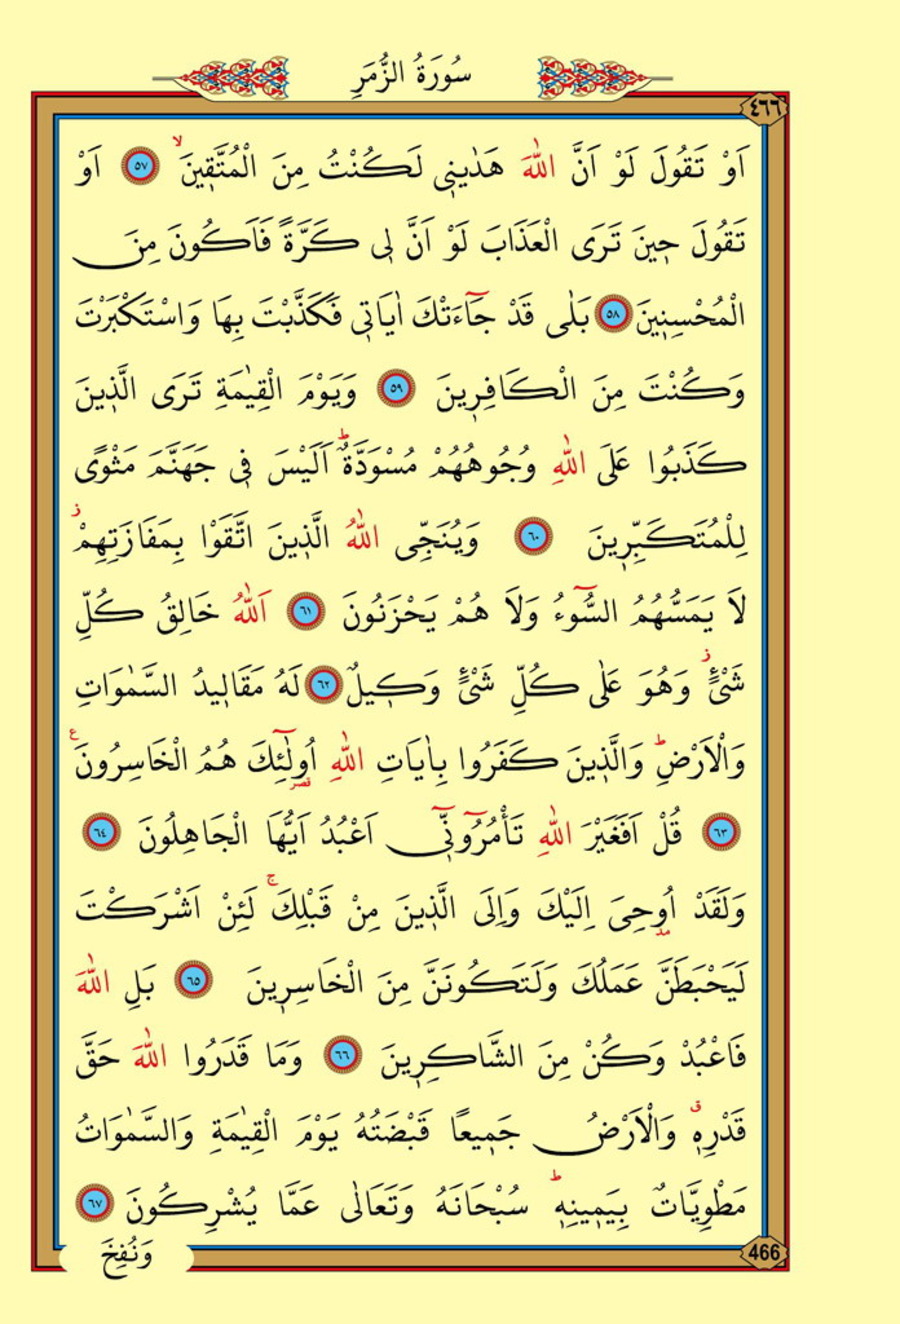 سُورَةُ الزُّمَرِ
٤٦٦
اَوْ تَقُولَ لَوْ اَنَّ اللّٰهَ هَدٰينٖي لَكُنْتُ مِنَ الْمُتَّقٖينَۙ ﴿٥٧﴾ اَوْ
تَقُولَ حٖينَ تَرَى الْعَذَابَ لَوْ اَنَّ لٖي كَرَّةً فَاَكُونَ مِنَ
الْمُحْسِنٖينَ ﴿٥٨﴾ بَلٰى قَدْ جَٓاءَتْكَ اٰيَاتٖي فَكَذَّبْتَ بِهَا وَاسْتَكْبَرْتَ
وَكُنْتَ مِنَ الْكَافِرٖينَ ﴿٥٩﴾ وَيَوْمَ الْقِيٰمَةِ تَرَى الَّذٖينَ
كَذَبُوا عَلَى اللّٰهِ وُجُوهُهُمْ مُسْوَدَّةٌؕ اَلَيْسَ فٖي جَهَنَّمَ مَثْوًى
لِلْمُتَكَبِّرٖينَ ﴿٦٠﴾ وَيُنَجِّي اللّٰهُ الَّذٖينَ اتَّقَوْا بِمَفَازَتِهِمْؗ
لَا يَمَسُّهُمُ السُّٓوءُ وَلَا هُمْ يَحْزَنُونَ ﴿٦١﴾ اَللّٰهُ خَالِقُ كُلِّ
شَيْءٍؗ وَهُوَ عَلٰى كُلِّ شَيْءٍ وَكٖيلٌ ﴿٦٢﴾ لَهُ مَقَالٖيدُ السَّمٰوَاتِ
وَالْاَرْضِؕ وَالَّذٖينَ كَفَرُوا بِاٰيَاتِ اللّٰهِ اُو۬لٰٓئِكَ هُمُ الْخَاسِرُونَ ع
﴿٦٣﴾ قُلْ اَفَغَيْرَ اللّٰهِ تَأْمُرُٓونّٖٓي اَعْبُدُ اَيُّهَا الْجَاهِلُونَ ﴿٦٤﴾
وَلَقَدْ اُو۫حِيَ اِلَيْكَ وَاِلَى الَّذٖينَ مِنْ قَبْلِكَۚ لَئِنْ اَشْرَكْتَ
لَيَحْبَطَنَّ عَمَلُكَ وَلَتَكُونَنَّ مِنَ الْخَاسِرٖينَ ﴿٦٥﴾ بَلِ اللّٰهَ
فَاعْبُدْ وَكُنْ مِنَ الشَّاكِرٖينَ ﴿٦٦﴾ وَمَا قَدَرُوا اللّٰهَ حَقَّ
قَدْرِهٖۗ وَالْاَرْضُ جَمٖيعًا قَبْضَتُهُ يَوْمَ الْقِيٰمَةِ وَالسَّمٰوَاتُ
مَطْوِيَّاتٌ بِيَمٖينِهٖؕ سُبْحَانَهُ وَتَعَالٰى عَمَّا يُشْرِكُونَ ﴿٦٧﴾
وَنُفِخَ
466